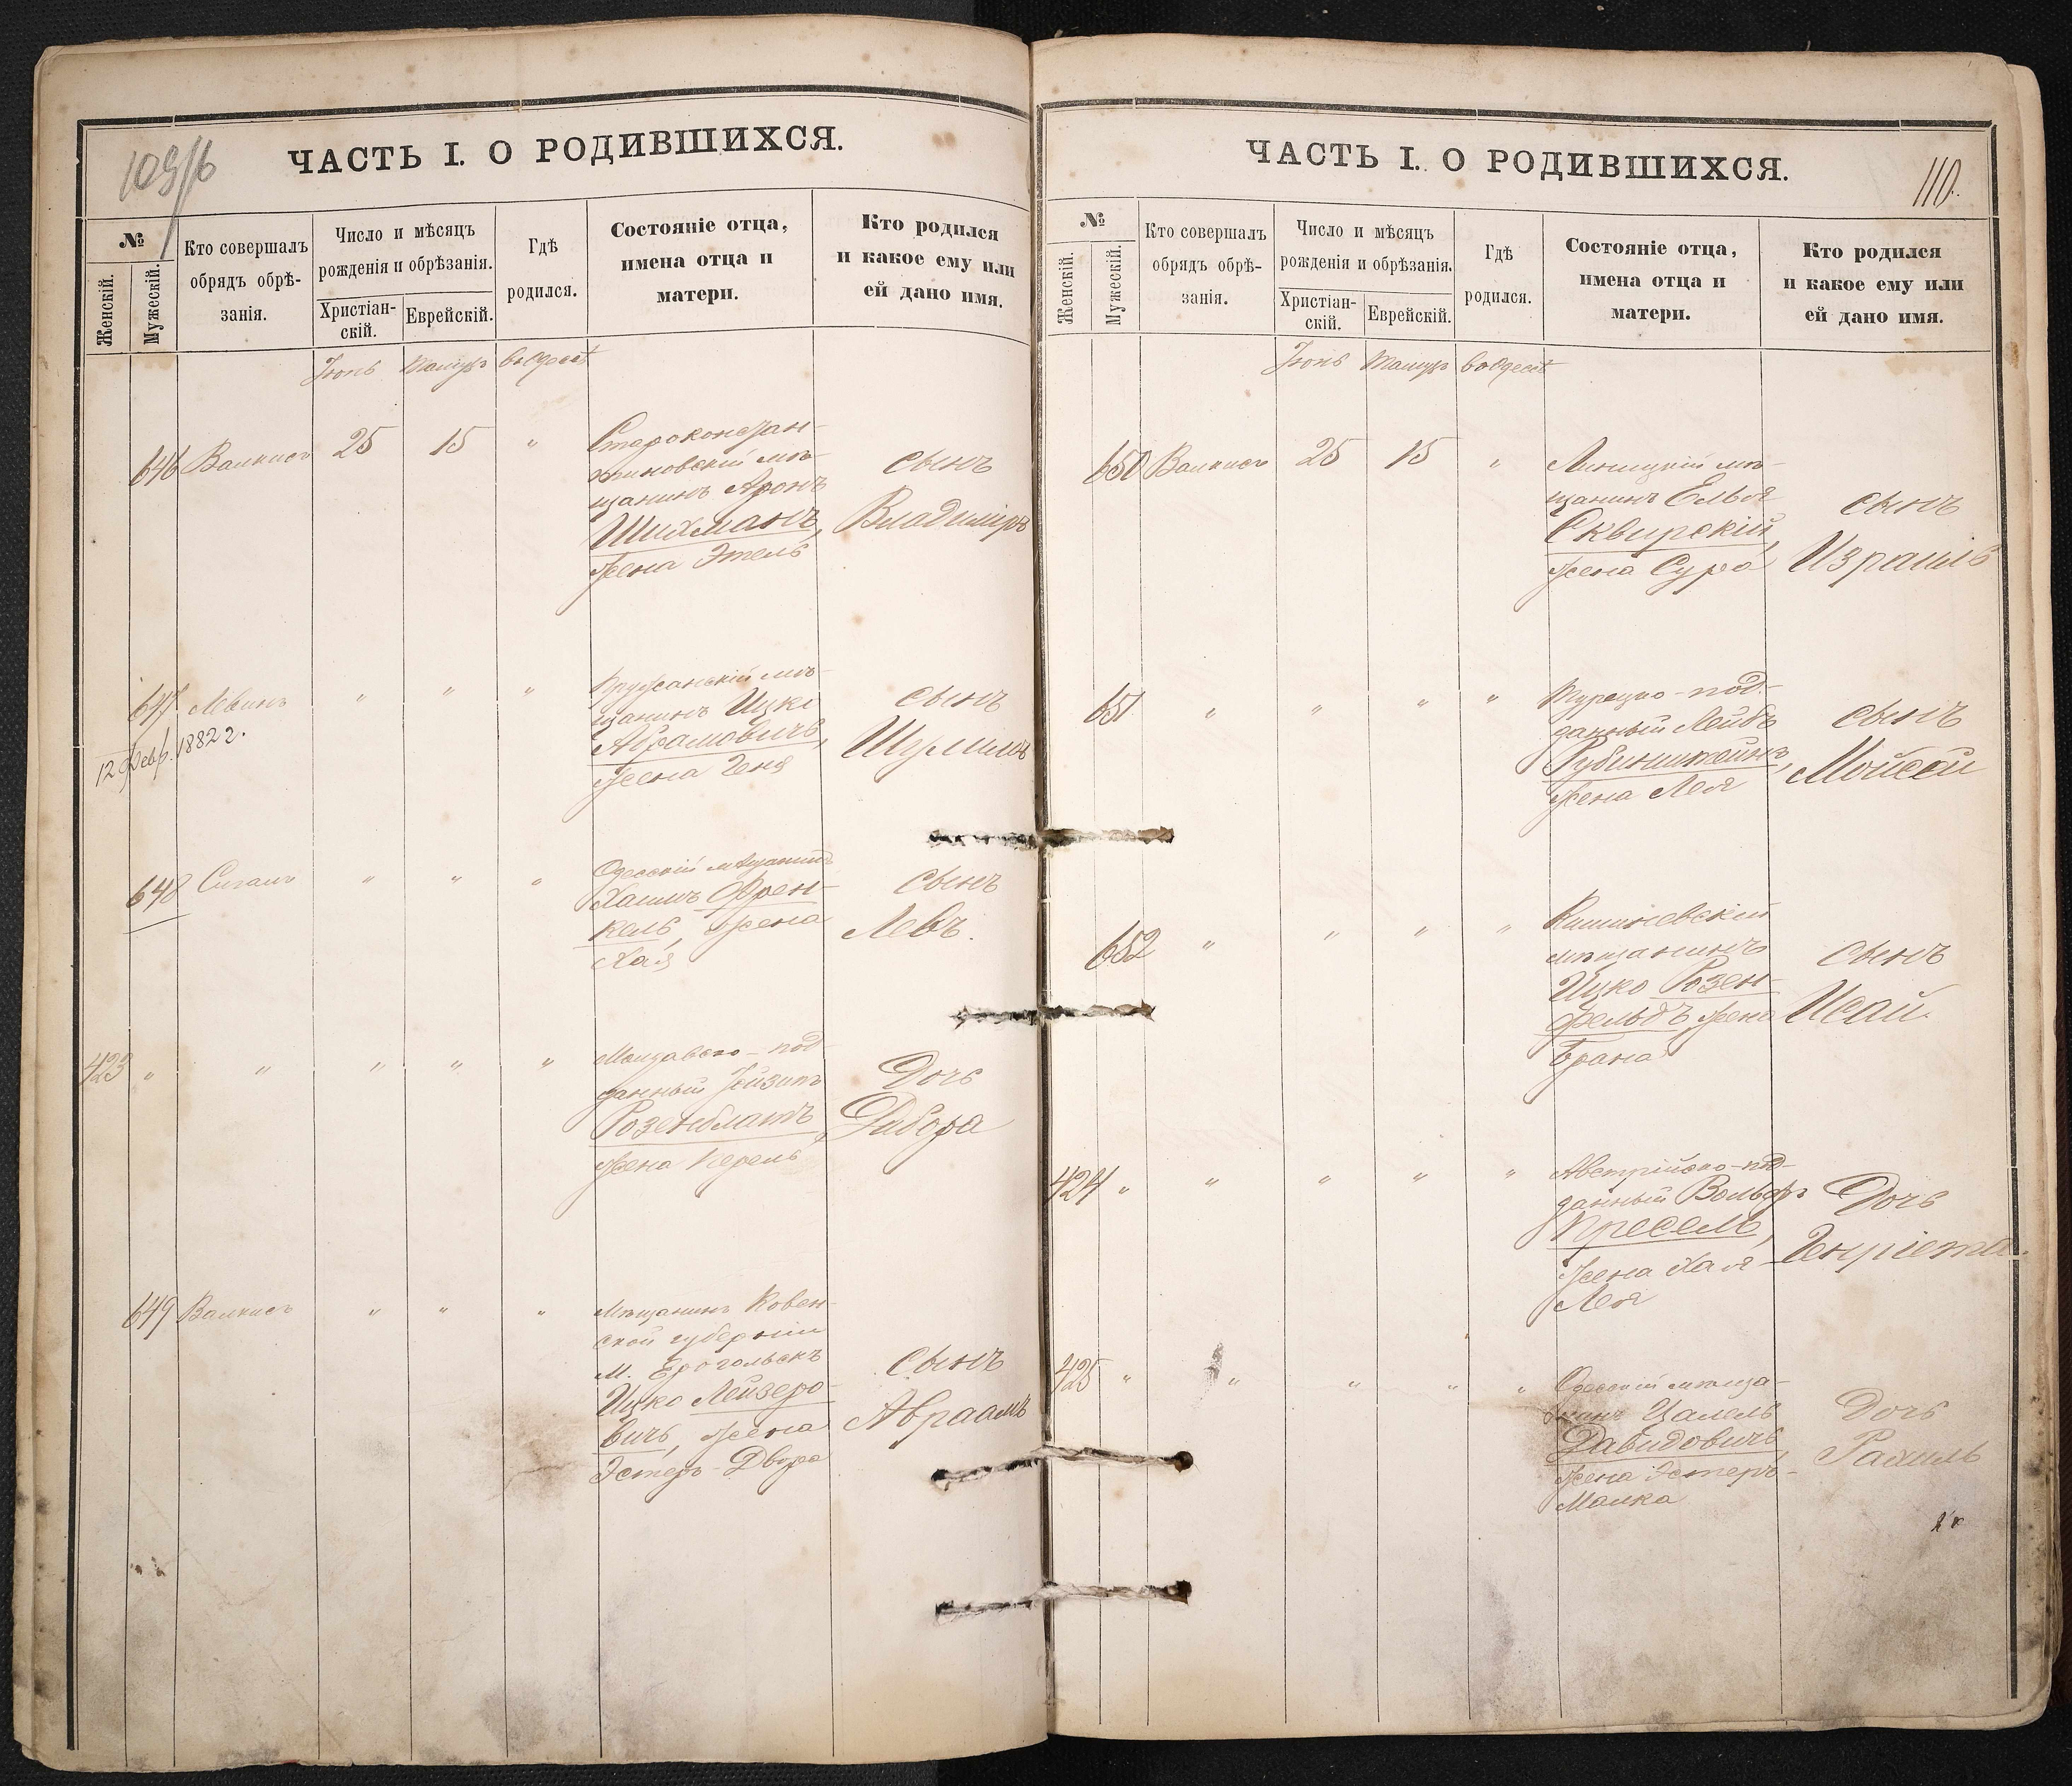 109/б
ЧАСТЬ I. О РОДИВШИХСЯ.
№
Женскій.
Мужескій.
Кто совершалъ
обрядъ обрѣ-
занія.
Число и мѣсяцъ
рожденія и обрѣзанія.
Христіан-
скій.
Еврейскій.
Гдѣ
родился.
Состояніе отца,
имена отца и
матери.
Кто родился
и какое ему или
ей дано имя.
Іюнь Тамузъ въ Одессѣ
646 Валкисъ 25 15 "
Староконстан-
тиновскій мѣ-
щанинъ Аронъ
Шихманъ,
жена Этель
сынъ
Владиміръ
647 Левинъ " " "
12 Февр. 1882 г.
Пружанскій мѣ-
щанинъ Ицко
Абрамовичъ,
жена Геня
сынъ
Шулимъ
648 Сигалъ " " "
Одесскій мѣщанинъ
Хаимъ Френ-
кель, жена
Хая
сынъ
Левъ.
423 " " " " "
Молдавско-под-
данный
Розенблатъ,
жена Перель
Дочь
Дебора
649 Валкисъ " " "
Мѣщанинъ Ковен-
ской губерніи
м. Ерогольскъ
Ицко Лейзеро-
вичъ, жена
Эстеръ-Двора
сынъ
Авраамъ
ЧАСТЬ I. О РОДИВШИХСЯ.
110.
№
Женскій.
Мужескій.
Кто совершалъ
обрядъ обрѣ-
занія.
Число и мѣсяцъ
рожденія и обрѣзанія.
Христіан-
скій.
Еврейскій.
Гдѣ
родился.
Состояніе отца,
имена отца и
матери.
Кто родился
и какое ему или
ей дано имя.
Іюнь Тамузъ въ Одессѣ
650 Валкисъ 25 15 "
Липецкій мѣ-
щанинъ Елья
Сквирскій,
жена Сура
сынъ
Израиль
651 " " " "
Турецко-под-
данный Лейбъ
Рубинштейнъ,
жена Лея
сынъ
Мойсей
652 " " " "
Кишиневскій
мѣщанинъ
Ицко Розен-
фельдъ жена
Брана
сынъ
Исай.
424 " " " " "
Австрійско-под-
данный Вольфъ
Пресель,
жена Хая
Лея
Дочь
Генріета.
425 " " " " "
Одесскій мѣща-
нинъ Цалель
Давидовичъ,
жена Эстеръ-
Малка
Дочь
Рахиль